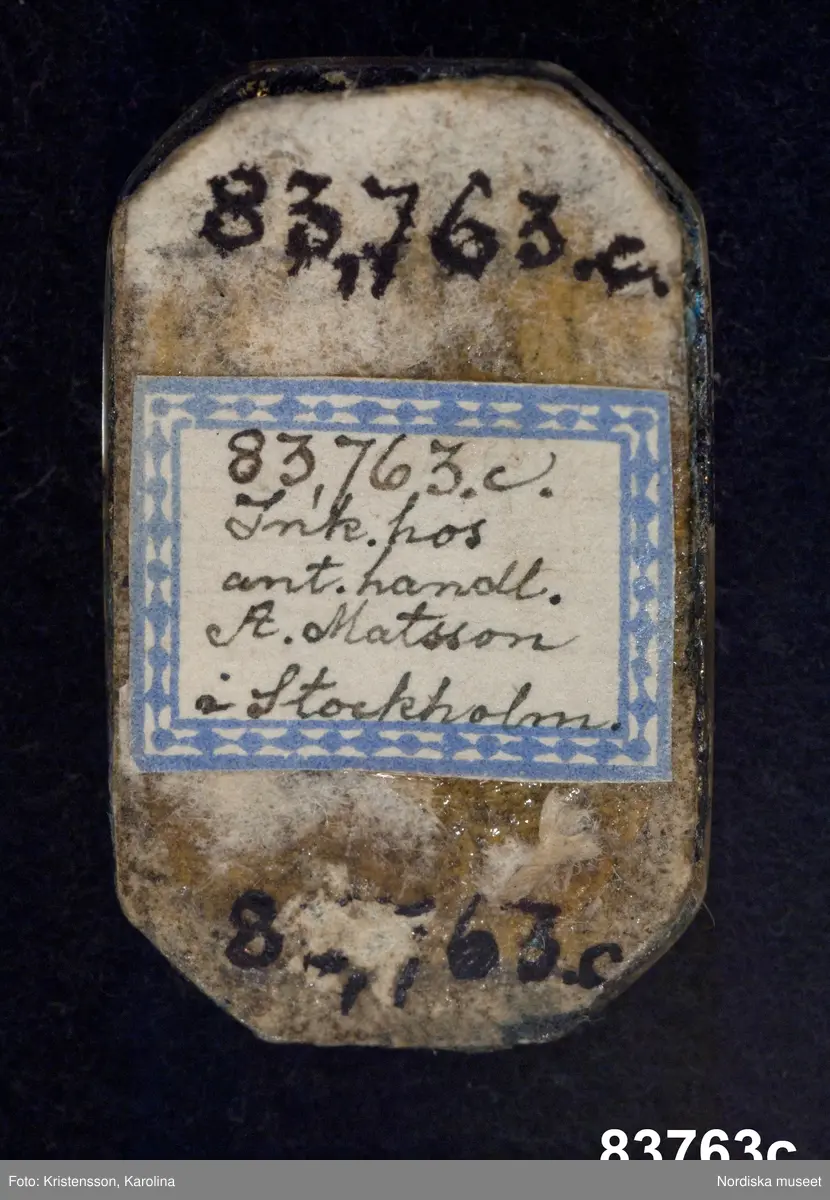 83,763.c.
83,763.c.
Ink. hos
ant. handl.
A. Matsson
i Stockholm.
8 763.c
83763c
Foto: Kristensson, Karolina
Nordiska museet